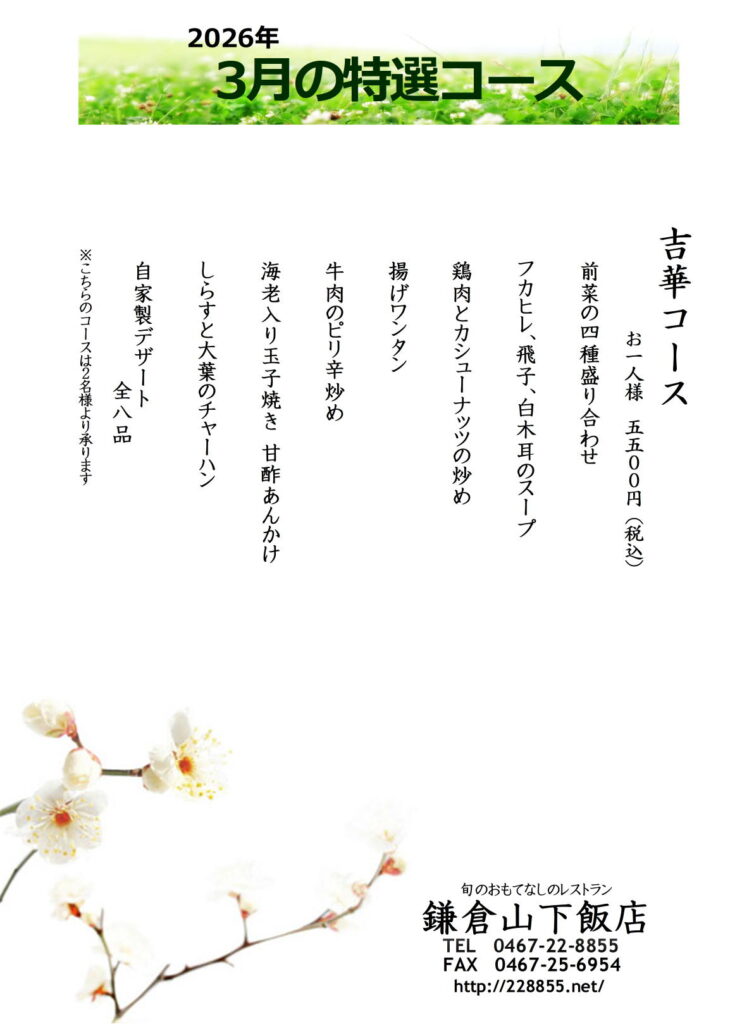 2026年
3月の特選コース
吉華コース
お一人様 五五００円（税込）
前菜の四種盛り合わせ
フカヒレ、飛子、白木耳のスープ
鶏肉とカシューナッツの炒め
揚げワンタン
牛肉のピリ辛炒め
海老入り玉子焼き 甘酢あんかけ
しらすと大葉のチャーハン
自家製デザート
全八品
※こちらのコースは２名様より承ります
旬のおもてなしのレストラン
鎌倉山下飯店
TEL 0467-22-8855
FAX 0467-25-6954
http://228855.net/